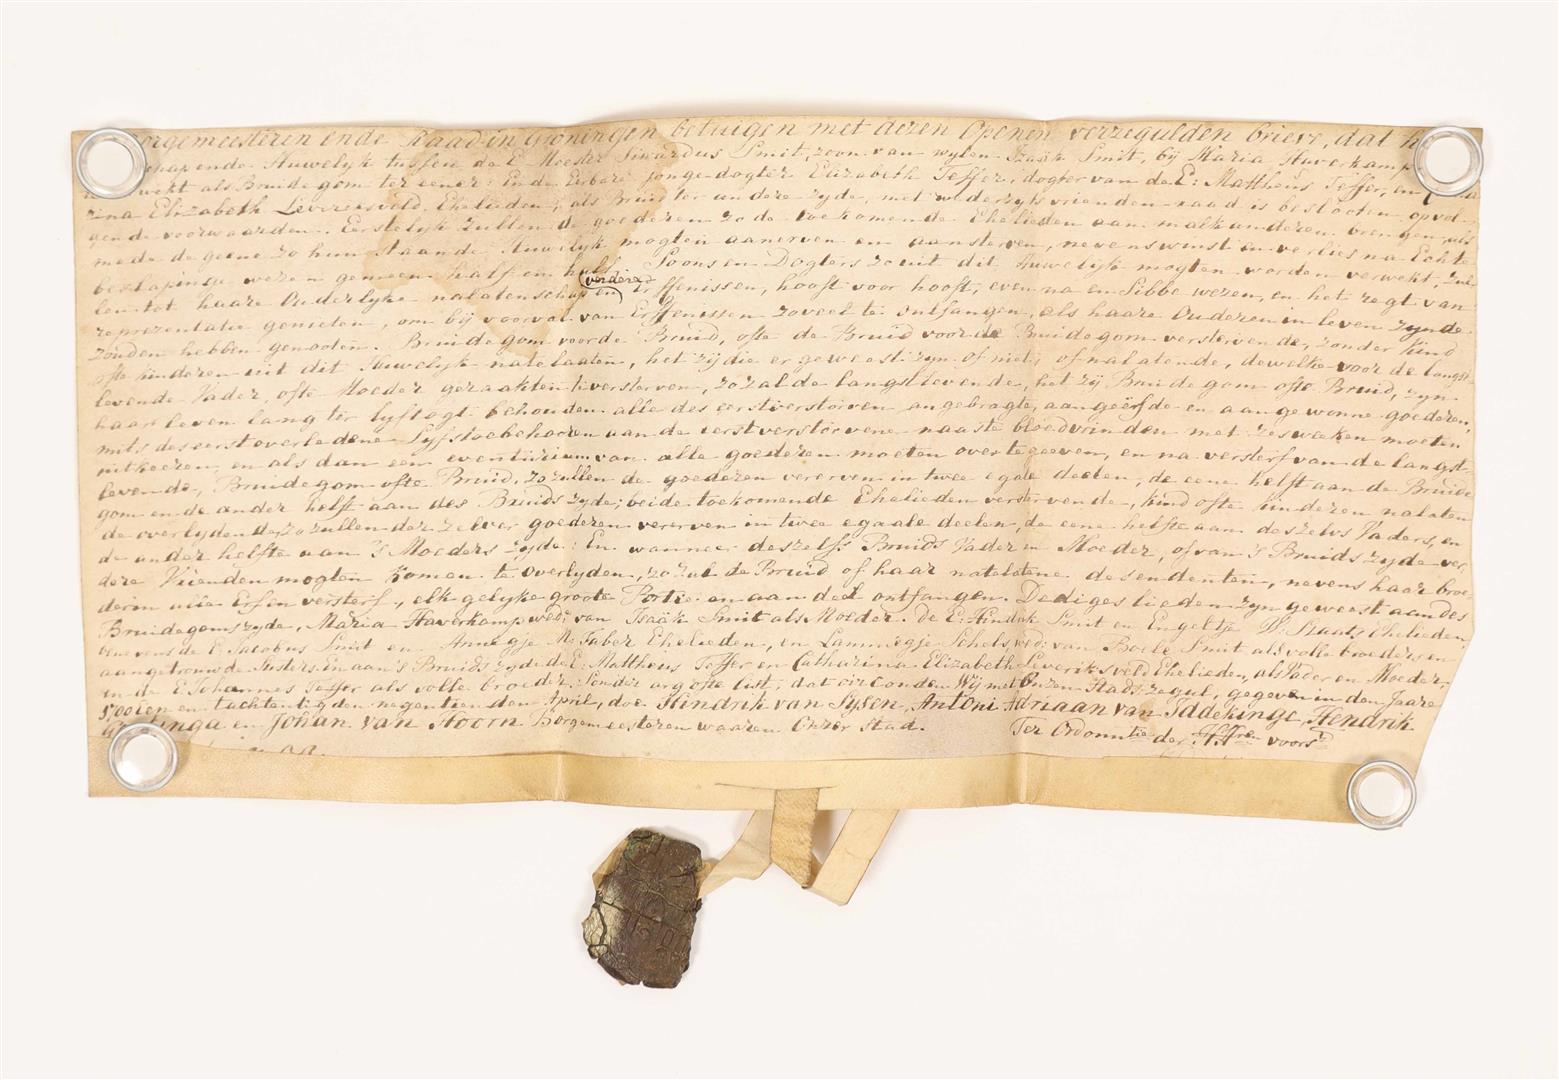 orgemeesteren ende Raad in Groningen betuigen met dezen Openen verzegulden brieve, dat
schap ende Huwelijk tussen de E. Meester Siwardus Smit, zoon van wylen Izaäk Smit, bij Maria Haverkamp
wekt als Bruidegom ter eener: Ende Eerbare jonge dogter Elizabeth Teffer, dogter van de E: Mattheus Teffer, en
rina Elizabeth Leveriksveld, Ehelieden, als Bruid ter andere zyde, met wederzyts vrienden raad is beslooten op vol-
gende voorwaarden. Eerstelijk zullen de goederen zo de toekomende Ehelieden aan malkanderen brengen, als
mede de geene zo hun staande Huwelijk mogten aanerven en aansterven, nevens winst en verlies na Echte
beslapinge wezen gemeen half en half. Soons en Dogters zo uit dit Huwelijk mogten worden verwekt, zul-
len tot haare Ouderlyke nalatenschap en verdere Erffenissen, hooft voor hooft, even na en Sibbe wezen, en het regt van
reprezentatie genieten, om bij voorval van Erffenissen zoveel te ontfangen, als haare Ouderen in leven zynde
zouden hebben genooten. Bruidegom voor de Bruid, ofte de Bruid voor de Bruidegom verstervende, zonder Kind
ofte Kinderen uit dit Huwelijk natelaaten, het zij die er geweest zyn of niet, of nalatende, dewelke voor de langst-
levende Vader, ofte Moeder geraakten te versterven, zo zal de langstlevende, het zij Bruidegom ofte Bruid, zyn
haar leven lang ter lyftogt behouden alle des eerstverstorven angebragte, aangeërfde en aangewonne goederen,
mits des eerst overledene Lyfstoebehooren aan de eerstverstorvene naaste bloedvrinden met zes weeken moeten
uitkeeren, en als dan een eventarium van alle goederen moeten overtegeeven, en na versterf van de langst-
levende, Bruidegom ofte Bruid, zo zullen de goederen vererven in twee egale deelen, de eene helft aan de Bruide
gom en de ander helft aan des Bruids zyde; beide toekomende Ehelieden verstervende, Kind ofte Kinderen nalaten
de overlydende, zo zullen derzelver goederen vererven in twee egaale deelen, de eene helfte aan deszelvs Vaders, en
de ander helfte aan 's Moeders zyde: En wanneer deszelfs Bruids Vader en Moeder, of van 's Bruids zyde ver
dere Vrienden mogten Komen te Overlyden, zo zal de Bruid of haar natelatene desendenten, nevens haar broe-
deren uitte Erf en versterf, elk gelyke groote Portie en aandeel ontfangen. Dedigeslieden zyn geweest aan des
Bruidegoms zyde, Maria Haverkamp wed: van Isaäk Smit als Moeder. De E: Hindrik Smit en Engeltje Ds. Staats Ehelieden
benevens de E. Jacobus Smit en Annegje M. Faber Ehelieden, en Lammegje Schels, wed: van Boele Smit als volle broeders en
aangetrouwde Susters. En aan 's Bruids zyde de E: Mattheus Teffer en Catharina Elizabeth Leveriksveld Ehelieden, als Vader en Moeder,
en de E. Johannes Teffer als volle broeder. Sonder arg ofte list, dat oirconden Wij met Onzen Stads zegul, gegeven in den Jaare
en tachtentig den negentienden April, doe Hindrik van Sysen, Antoni Adriaan van Iddekinge, Hendrik
inga en Johan van Hoorn Borgemeesteren waaren Onzer Stad. Ter Ordonntie der HHren voorsd